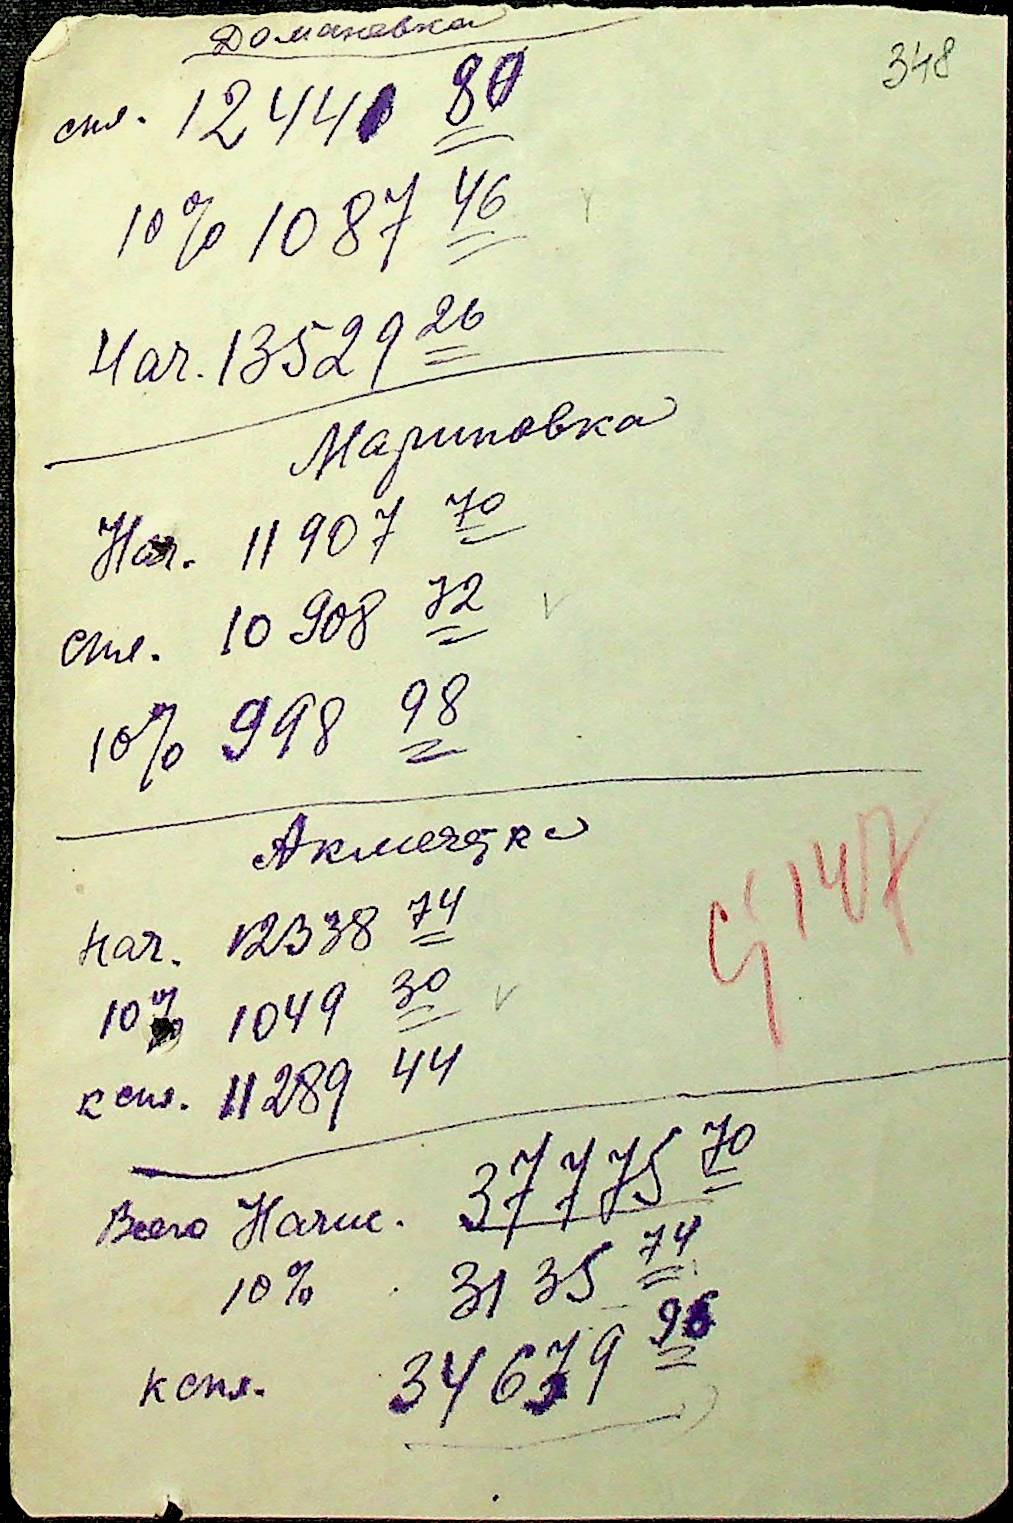 Домановка
348
спл. 12441 80
10% 1087 46
Нач. 13529 26
Мариновка
Нач. 11907 70
спл. 10908 72
10% 998 98
Акмечетка
нач. 12338 74
10% 1049 30
147
к спл. 11289 44
Всего Начис. 37775 70
10% 3135 74
к спл. 34639 96